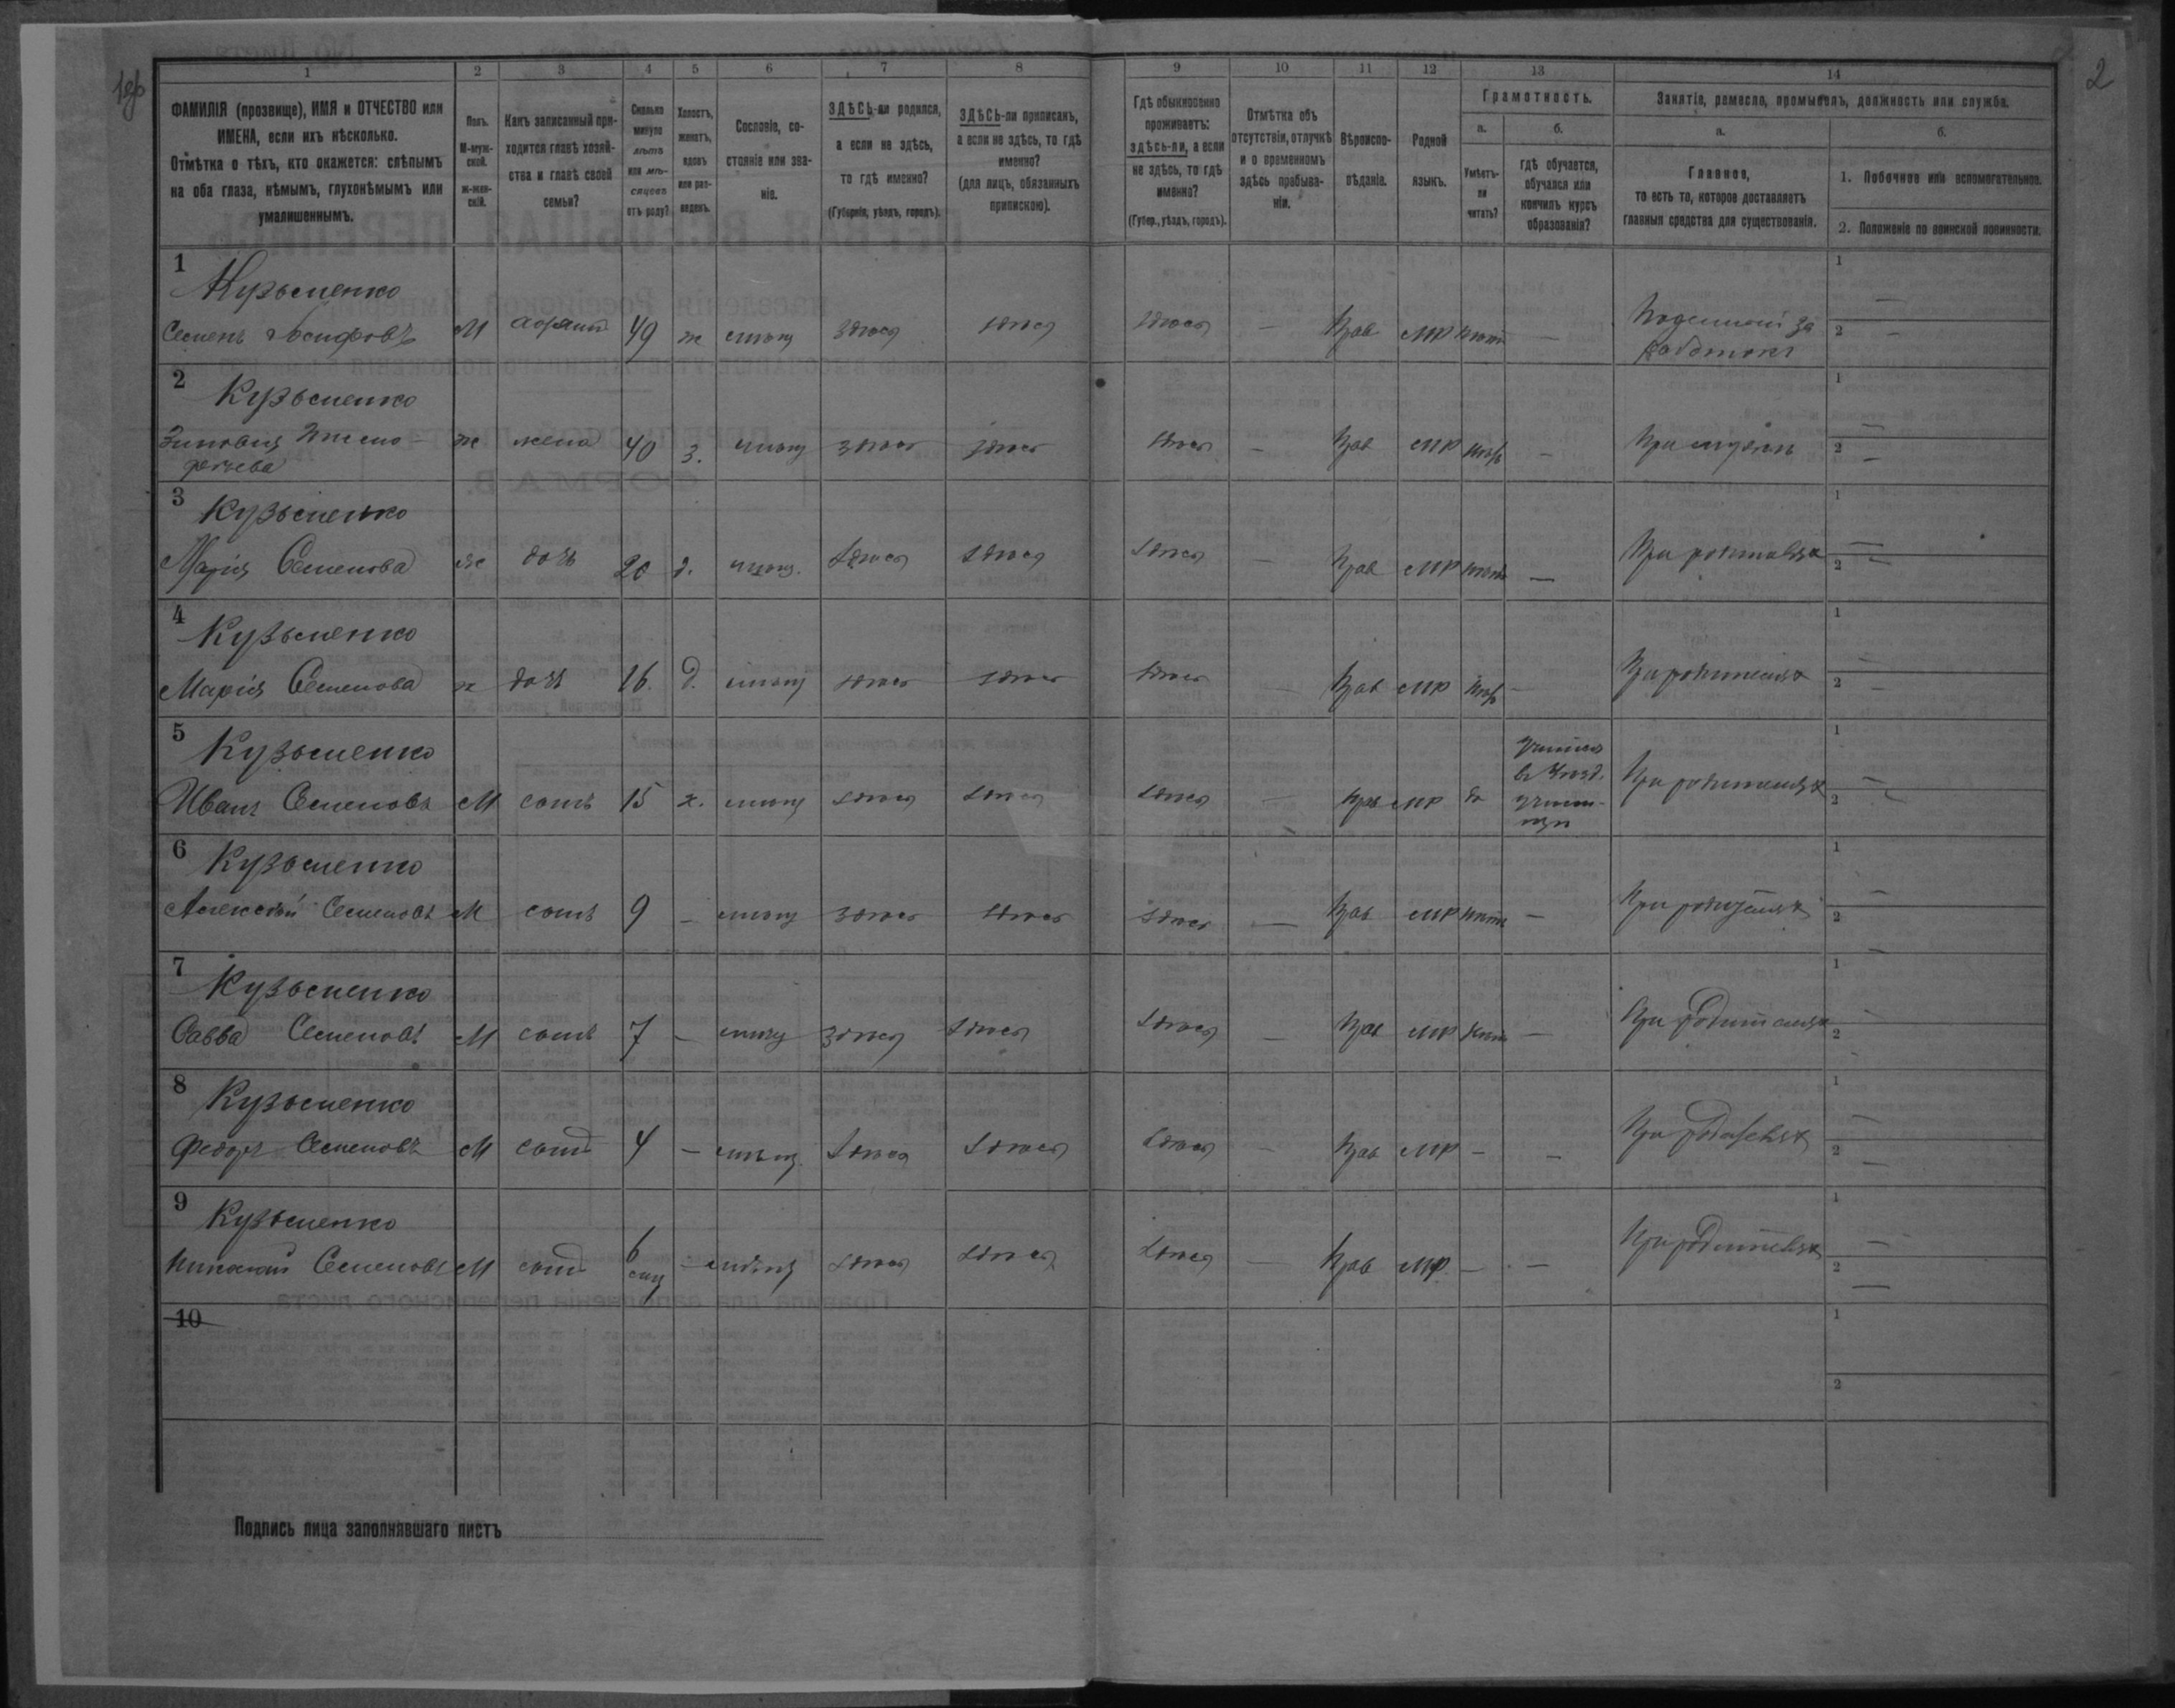 2
1 2 3 4 5 6 7 8 9 10 11 12 13 14
ФАМИЛІЯ (прозвище), ИМЯ и ОТЧЕСТВО или
ИМЕНА, если ихъ нѣсколько.
Отмѣтка о тѣхъ, кто окажется: слѣпымъ
на оба глаза, нѣмымъ, глухонѣмымъ или
умалишеннымъ.
Полъ.
М-муж-
ской.
ж-жен-
скій.
Какъ записанный при-
ходится главѣ хозяй-
ства и главѣ своей
семьи?
Сколько
минуло
лѣтъ
или мѣ-
сяцевъ
отъ роду?
Холостъ,
женатъ,
вдовъ
или раз-
веденъ.
Сословіе, со-
стояніе или зва-
ніе.
ЗДѢСЬ-ли родился,
а если не здѣсь,
то гдѣ именно?
(Губернія, уѣздъ, городъ).
ЗДѢСЬ-ли приписанъ,
а если не здѣсь, то гдѣ
именно?
(для лицъ, обязанныхъ
припискою).
Гдѣ обыкновенно
проживаетъ:
здѣсь-ли, а если
не здѣсь, то гдѣ
именно?
(Губер., уѣздъ, городъ).
Отмѣтка объ
отсутствіи, отлучкѣ
и о временномъ
здѣсь пребыва-
ніи.
Вѣроиспо-
вѣданіе.
Родной
языкъ.
Грамотность.
а.
Умѣетъ-
ли
читать?
б.
гдѣ обучается,
обучался или
кончилъ курсъ
образованія?
Занятіе, ремесло, промыселъ, должность или служба.
а.
Главное,
то есть то, которое доставляетъ
главныя средства для существованія.
б.
1. Побочное или вспомогательное.
2. Положеніе по воинской повинности.
1 Кузьменко
Семенъ Іосифовъ М 49 ж мѣщ здѣсь здѣсь здѣсь — Прав МР нѣтъ —
1 —
2 —
2 Кузьменко
Зиновія ж жена 40 з. мѣщ здѣсь здѣсь здѣсь — Прав МР нѣтъ — При мужѣ
1 —
2 —
3 Кузьменко
Марія Семенова ж дочь 20 д. мѣщ. здѣсь здѣсь здѣсь — Прав МР нѣтъ — При родителяхъ
1 —
2 —
4 Кузьменко
Марія Семенова ж дочь 16. д. мѣщ здѣсь здѣсь здѣсь — Прав МР нѣтъ — При родителяхъ
1 —
2 —
5 Кузьменко
Иванъ Семеновъ М сынъ 15 х. мѣщ здѣсь здѣсь здѣсь — Прав МР да При родителяхъ
1 —
2 —
6 Кузьменко
Алексѣй Семеновъ М сынъ 9 — мѣщ здѣсь здѣсь здѣсь — Прав МР нѣтъ — При родителяхъ
1 —
2 —
7 Кузьменко
Савва Семеновъ М сынъ 7 — мѣщ здѣсь здѣсь здѣсь — Прав МР нѣтъ — При родителяхъ
1 —
2
8 Кузьменко
Федоръ Семеновъ М сынъ 4 — мѣщ. здѣсь здѣсь здѣсь — Прав МР — — При родителяхъ
1 —
2 —
9 Кузьменко
Николай Семеновъ М сынъ 6 мц — мѣщ здѣсь здѣсь здѣсь — Прав МР — — При родителяхъ
1 —
2 —
10
1
2
Подпись лица заполнявшаго листъ